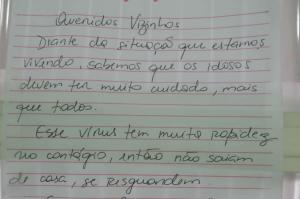 Queridos Vizinhos
Diante da situação que estamos
vivendo, sabemos que os idosos
devem ter muito cuidado, mais
que todos.
Esse vírus tem muita rapidez
no contágio, então não saiam
de casa, se resguardem